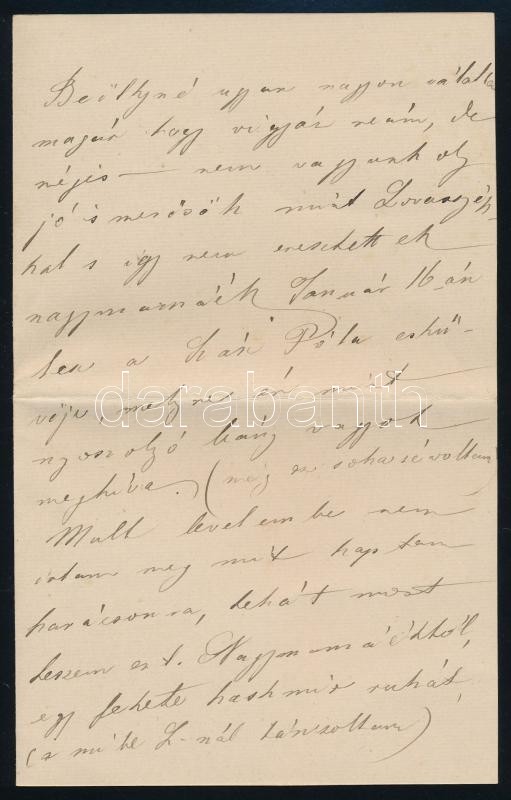 Beőthyné ugyan nagyon vállalta
magára hogy vigyáz reám, de
mégis – nem vagyunk oly
jó ismerősök mint Lovasszék-
kal s így nem eresztettek
nagymamáék. Január 16-án
lesz a Paula eskü-
vője, melyre én mint
nyoszolyó leány vagyok
meghíva. (még ez soha sé voltam)
Mult levelembe nem
irtam meg mit kaptam
karácsonra, tehát most
teszem ezt. Nagymamáéktól,
egy fekete kashmir ruhát,
(a mibe L-nál tánczoltam)
darabanth